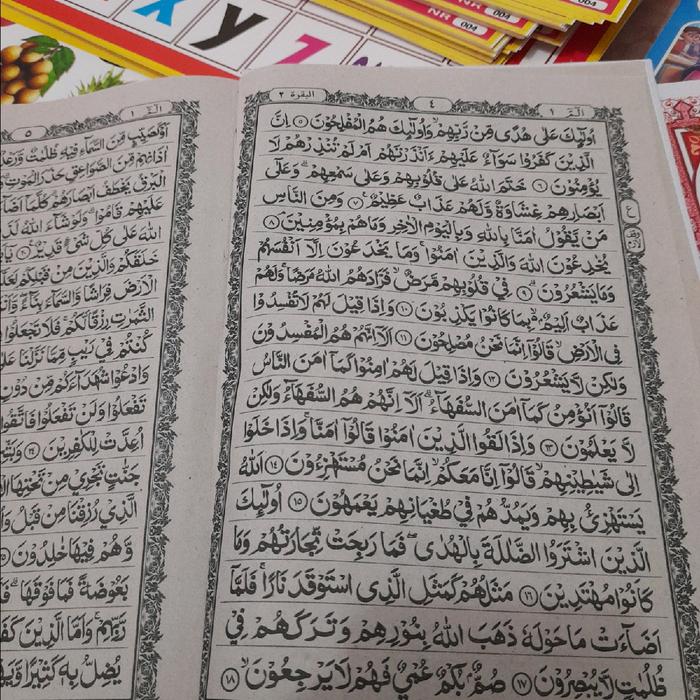 X
Y
Z
NR 004
NR 004
الٓمّٓ ١
٤
البقرة ٢
اُولٰٓئِكَ عَلٰى هُدًى مِّنْ رَّبِّهِمْ وَاُولٰٓئِكَ هُمُ الْمُفْلِحُوْنَ ۝٥ اِنَّ
الَّذِيْنَ كَفَرُوْا سَوَآءٌ عَلَيْهِمْ ءَاَنْذَرْتَهُمْ اَمْ لَمْ تُنْذِرْهُمْ لَا
يُؤْمِنُوْنَ ۝٦ خَتَمَ اللّٰهُ عَلٰى قُلُوْبِهِمْ وَعَلٰى سَمْعِهِمْ ؕ وَعَلٰٓى
اَبْصَارِهِمْ غِشَاوَةٌ وَّلَهُمْ عَذَابٌ عَظِيْمٌ ۝٧ وَمِنَ النَّاسِ
مَنْ يَّقُوْلُ اٰمَنَّا بِاللّٰهِ وَبِالْيَوْمِ الْاٰخِرِ وَمَا هُمْ بِمُؤْمِنِيْنَ ۝٨
يُخٰدِعُوْنَ اللّٰهَ وَالَّذِيْنَ اٰمَنُوْا ۚ وَمَا يَخْدَعُوْنَ اِلَّآ اَنْفُسَهُمْ
وَمَا يَشْعُرُوْنَ ۝٩ فِيْ قُلُوْبِهِمْ مَّرَضٌ ۙ فَزَادَهُمُ اللّٰهُ مَرَضًا ۚ وَلَهُمْ
عَذَابٌ اَلِيْمٌ ۢ ۙ بِمَا كَانُوْا يَكْذِبُوْنَ ۝١٠ وَاِذَا قِيْلَ لَهُمْ لَا تُفْسِدُوْا
فِى الْاَرْضِ ۙ قَالُوْٓا اِنَّمَا نَحْنُ مُصْلِحُوْنَ ۝١١ اَلَآ اِنَّهُمْ هُمُ الْمُفْسِدُوْنَ
وَلٰكِنْ لَّا يَشْعُرُوْنَ ۝١٢ وَاِذَا قِيْلَ لَهُمْ اٰمِنُوْا كَمَآ اٰمَنَ النَّاسُ
قَالُوْٓا اَنُؤْمِنُ كَمَآ اٰمَنَ السُّفَهَآءُ ؕ اَلَآ اِنَّهُمْ هُمُ السُّفَهَآءُ وَلٰكِنْ
لَّا يَعْلَمُوْنَ ۝١٣ وَاِذَا لَقُوا الَّذِيْنَ اٰمَنُوْا قَالُوْٓا اٰمَنَّا ۚ وَاِذَا خَلَوْا
اِلٰى شَيٰطِيْنِهِمْ ۙ قَالُوْٓا اِنَّا مَعَكُمْ ۙ اِنَّمَا نَحْنُ مُسْتَهْزِءُوْنَ ۝١٤ اَللّٰهُ
يَسْتَهْزِئُ بِهِمْ وَيَمُدُّهُمْ فِيْ طُغْيَانِهِمْ يَعْمَهُوْنَ ۝١٥ اُولٰٓئِكَ
الَّذِيْنَ اشْتَرَوُا الضَّلٰلَةَ بِالْهُدٰى ۪ فَمَا رَبِحَتْ تِّجَارَتُهُمْ وَمَا
كَانُوْا مُهْتَدِيْنَ ۝١٦ مَثَلُهُمْ كَمَثَلِ الَّذِى اسْتَوْقَدَ نَارًا ۚ فَلَمَّآ
اَضَآءَتْ مَا حَوْلَهٗ ذَهَبَ اللّٰهُ بِنُوْرِهِمْ وَتَرَكَهُمْ فِيْ
ظُلُمٰتٍ لَّا يُبْصِرُوْنَ ۝١٧ صُمٌّۢ بُكْمٌ عُمْيٌ فَهُمْ لَا يَرْجِعُوْنَ ۝١٨
الٓمّٓ ١
٥
اَوْ كَصَيِّبٍ مِّنَ السَّمَآءِ فِيْهِ ظُلُمٰتٌ
اٰذَانِهِمْ مِّنَ الصَّوَاعِقِ حَذَرَ الْمَوْتِ
الْبَرْقُ يَخْطَفُ اَبْصَارَهُمْ ؕ كُلَّمَآ
عَلَيْهِمْ قَامُوْا ؕ وَلَوْ شَآءَ اللّٰهُ
اللّٰهَ عَلٰى كُلِّ شَيْءٍ قَدِيْرٌ
خَلَقَكُمْ وَالَّذِيْنَ مِنْ قَبْلِكُمْ
الْاَرْضَ فِرَاشًا وَّالسَّمَآءَ بِنَآءً
الثَّمَرٰتِ رِزْقًا لَّكُمْ ۚ فَلَا تَجْعَلُوْا
كُنْتُمْ فِيْ رَيْبٍ مِّمَّا نَزَّلْنَا
وَادْعُوْا شُهَدَآءَكُمْ مِّنْ دُوْنِ
تَفْعَلُوْا وَلَنْ تَفْعَلُوْا فَاتَّقُوا
اُعِدَّتْ لِلْكٰفِرِيْنَ ۝٢٤
جَنّٰتٍ تَجْرِيْ مِنْ تَحْتِهَا
الَّذِيْ رُزِقْنَا مِنْ قَبْلُ
وَّهُمْ فِيْهَا خٰلِدُوْنَ
بَعُوْضَةً فَمَا فَوْقَهَا
رَّبِّهِمْ ۚ وَاَمَّا الَّذِيْنَ
يُضِلُّ بِهٖ كَثِيْرًا